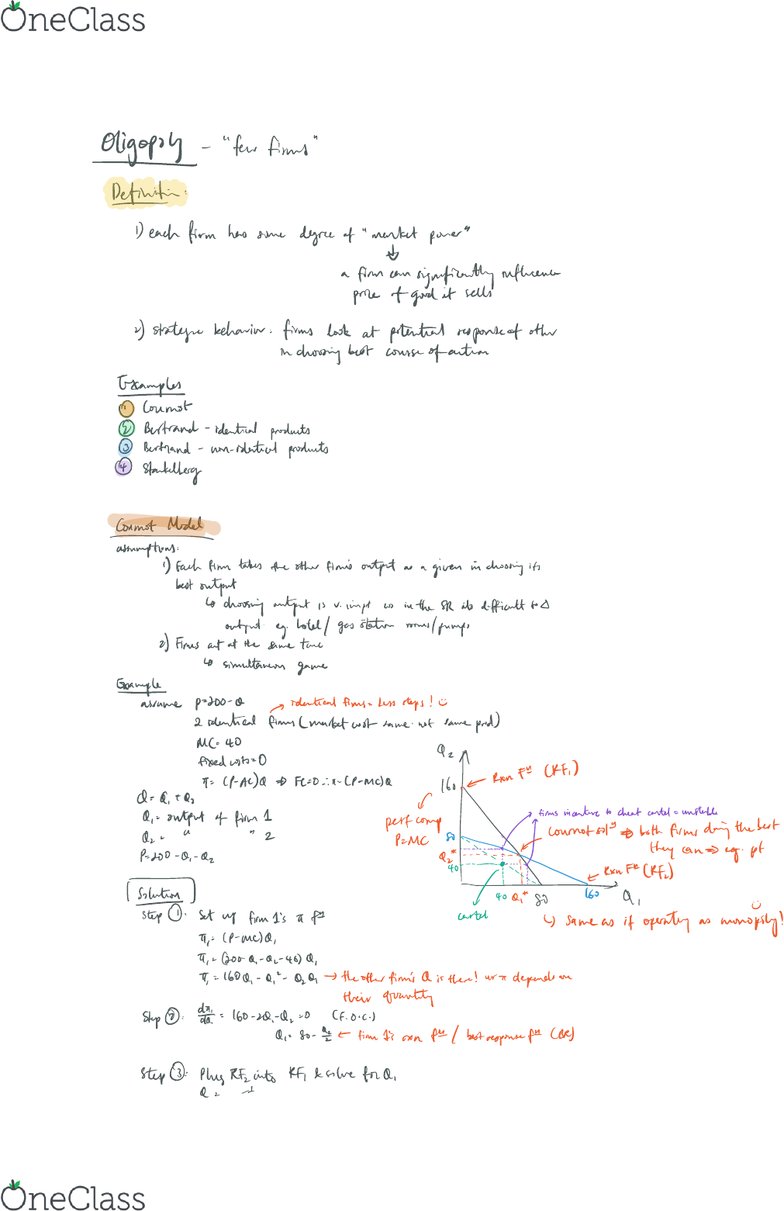 OneClass
Oligopoly - "few firms"
Definition:
1) each firm has some degree of "market power"
a firm can significantly influence
price of good it sells
2) strategic behavior: firms look at potential response of other
in choosing best course of action
Examples
1 Cournot
2 Bertrand - identical products
3 Bertrand - non-identical products
4 Stackelberg
Cournot Model
assumptions:
1) Each firm takes the other firm's output as a given in choosing its
best output
↳ choosing output is v. impt as in the SR its difficult to Δ
output eg. hotel / gas station rooms/pumps
2) Firms act at the same time
↳ simultaneous game
Example
assume P=200-Q → identical firms = less steps! ☺
2 identical firms (market cost same not same prod)
MC=40
fixed costs=0
π = (P-AC)Q ⇒ FC=0 ∴ π=(P-MC)Q
Q = Q₁ + Q₂
Q₁ = output of firm 1
Q₂ = " " 2
P=200-Q₁-Q₂
Q₂
160
Rxn Fⁿ (RF₁)
perf comp
P=MC
80
Q₂*
40
firms incentive to cheat cartel = unstable
Cournot solⁿ ⇒ both firms doing the best
they can ⇒ eq. pt
Rxn Fⁿ (RF₂)
40 Q₁* 80 160 Q₁
cartel
↳ same as if operating as monopoly! ☺
Solution
Step 1: Set up firm 1's π fⁿ
π₁ = (P-MC)Q₁
π₁ = (200-Q₁-Q₂-40)Q₁
π₁ = 160Q₁-Q₁²-Q₂Q₁ → the other firm's Q is there! ur π depends on
their quantity
Step 2: dπ₁/dQ₁ = 160-2Q₁-Q₂=0 (F.O.C.)
Q₁ = 80-Q₂/2 ← firm 1's rxn fⁿ / best response fⁿ (BR)
Step 3: Plug RF₂ into RF₁ & solve for Q₁
Q =
OneClass